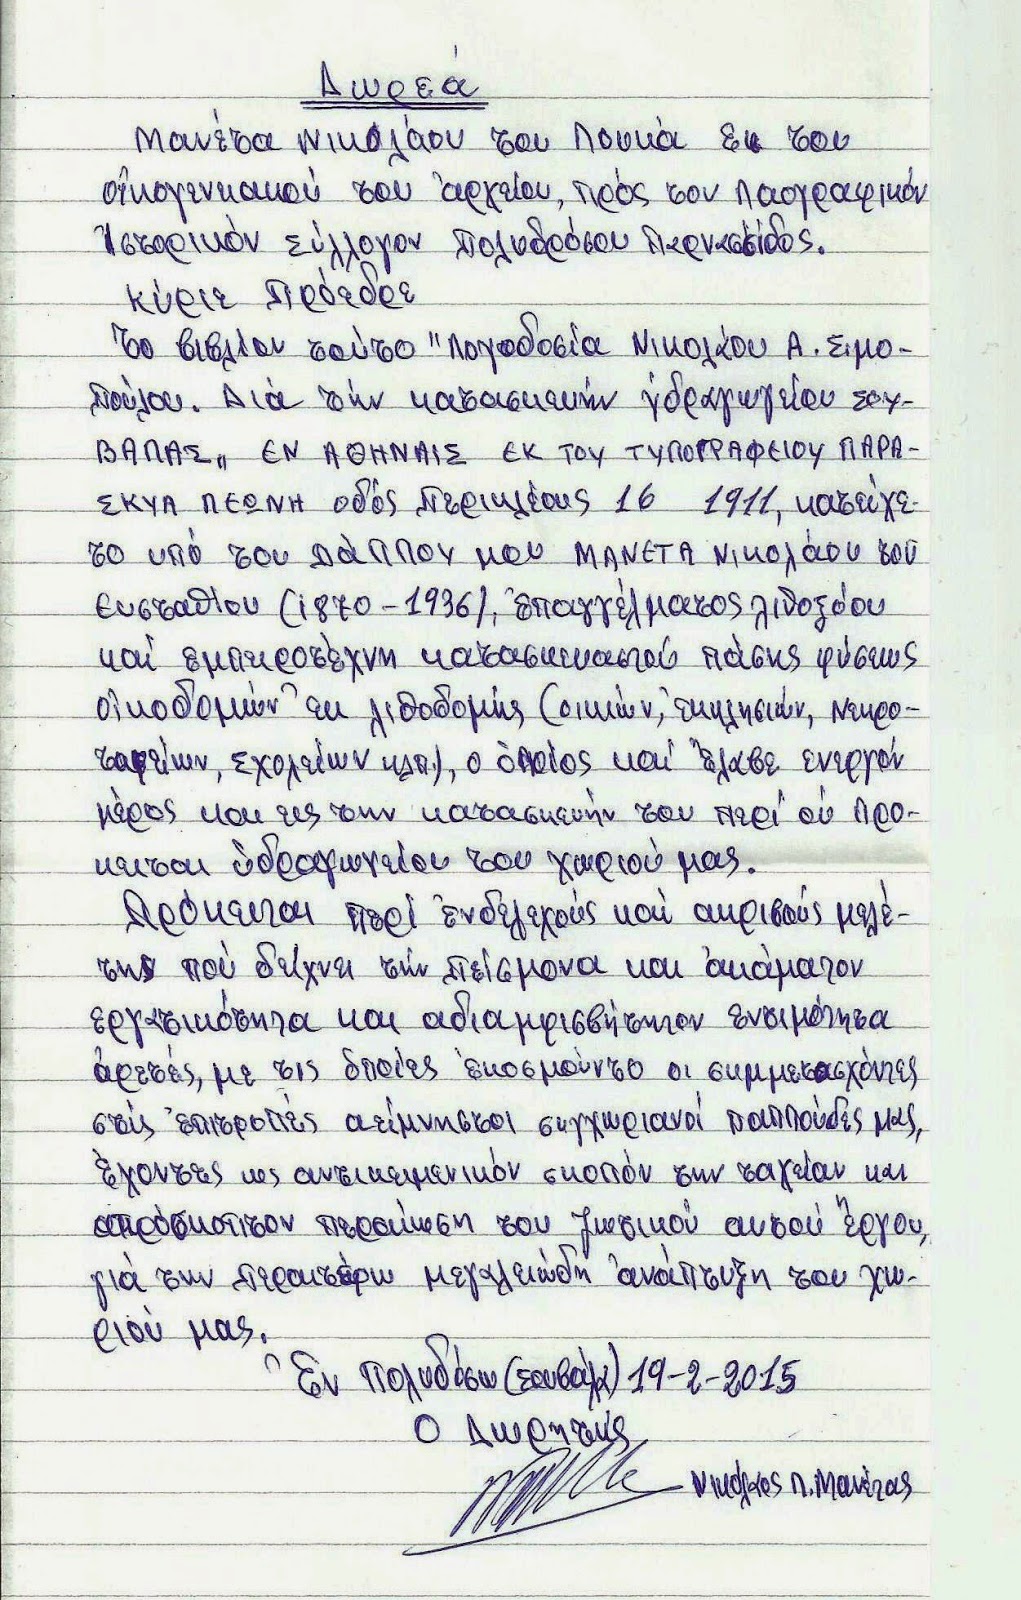 Δωρεά
Μανέτα Νικολάου του Λουκά εκ του
οἰκογενειακού του ἀρχείου, πρός τον Λαογραφικόν
Ἱστορικὸν Σύλλογον Πολυδρόσου Παρνασσίδος.
Κύριε Πρόεδρε
Το βιβλίον τούτο "Λογοδοσία Νικολάου Α. Σιμο-
πούλου. Διὰ τὴν κατασκευὴν ὑδραγωγείου ΣΟΥ-
ΒΑΛΑΣ" ΕΝ ΑΘΗΝΑΙΣ ΕΚ ΤΟΥ ΤΥΠΟΓΡΑΦΕΙΟΥ ΠΑΡΑ-
ΣΚΥΑ ΛΕΩΝΗ οδός Περικλέους 16 1911, κατείχε-
το υπό του ΠΑΠΠΟΥ μου ΜΑΝΕΤΑ Νικολάου του
Ευσταθίου (1870-1936), ἐπαγγέλματος λιθοξόου
καί εμπειροτέχνη κατασκευαστού πάσης φύσεως
οἰκοδομών ἐκ λιθοδομής (οικιών, ἐκκλησιών, Νεκρο-
ταφείων, σχολείων κλπ), ο ὁποίος καί ἔλαβε ενεργόν
μέρος και εις την κατασκευήν του περί ού πρό-
κειται ὑδραγωγείου του χωριού μας.
Πρόκειται περί ἐνδελεχούς καί ακριβούς μελέ-
της πού δείχνει τήν πείσμονα και ἀκάματον
εργατικότητα και αδιαμφισβήτητον εντιμότητα
ἀρετές, με τις ὁποίες ἐκοσμούντο οι συμμετασχόντες
στίς ἐπιτροπές αείμνηστοι συγχωριανοί παππούδες μας,
ἔχοντες ως αντικειμενικόν σκοπόν την ταχείαν και
απρόσκοπτον περαίωση του ζωτικού αυτού ἔργου,
γιὰ την περαιτέρω μεγαλειώδη ἀνάπτυξη του χω-
ριού μας.
Ἐν Πολυδόσω (Σουβάλα) 19-2-2015
Ο Δωρητής
Νικόλαος Λ. Μανέτας